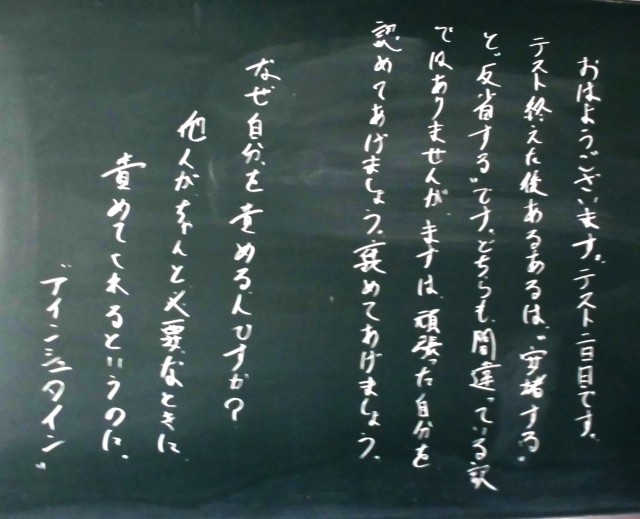 おはようございます。テスト二日目です。
テスト終えた後あるあるは、“安堵する”
と“反省する”です。どちらも間違っている訳
ではありませんが、まずは、頑張った自分を
認めてあげましょう。褒めてあげましょう。
なぜ自分を責めるんですか?
他人がちゃんと必要なときに
責めてくれるというのに。
“アインシュタイン”